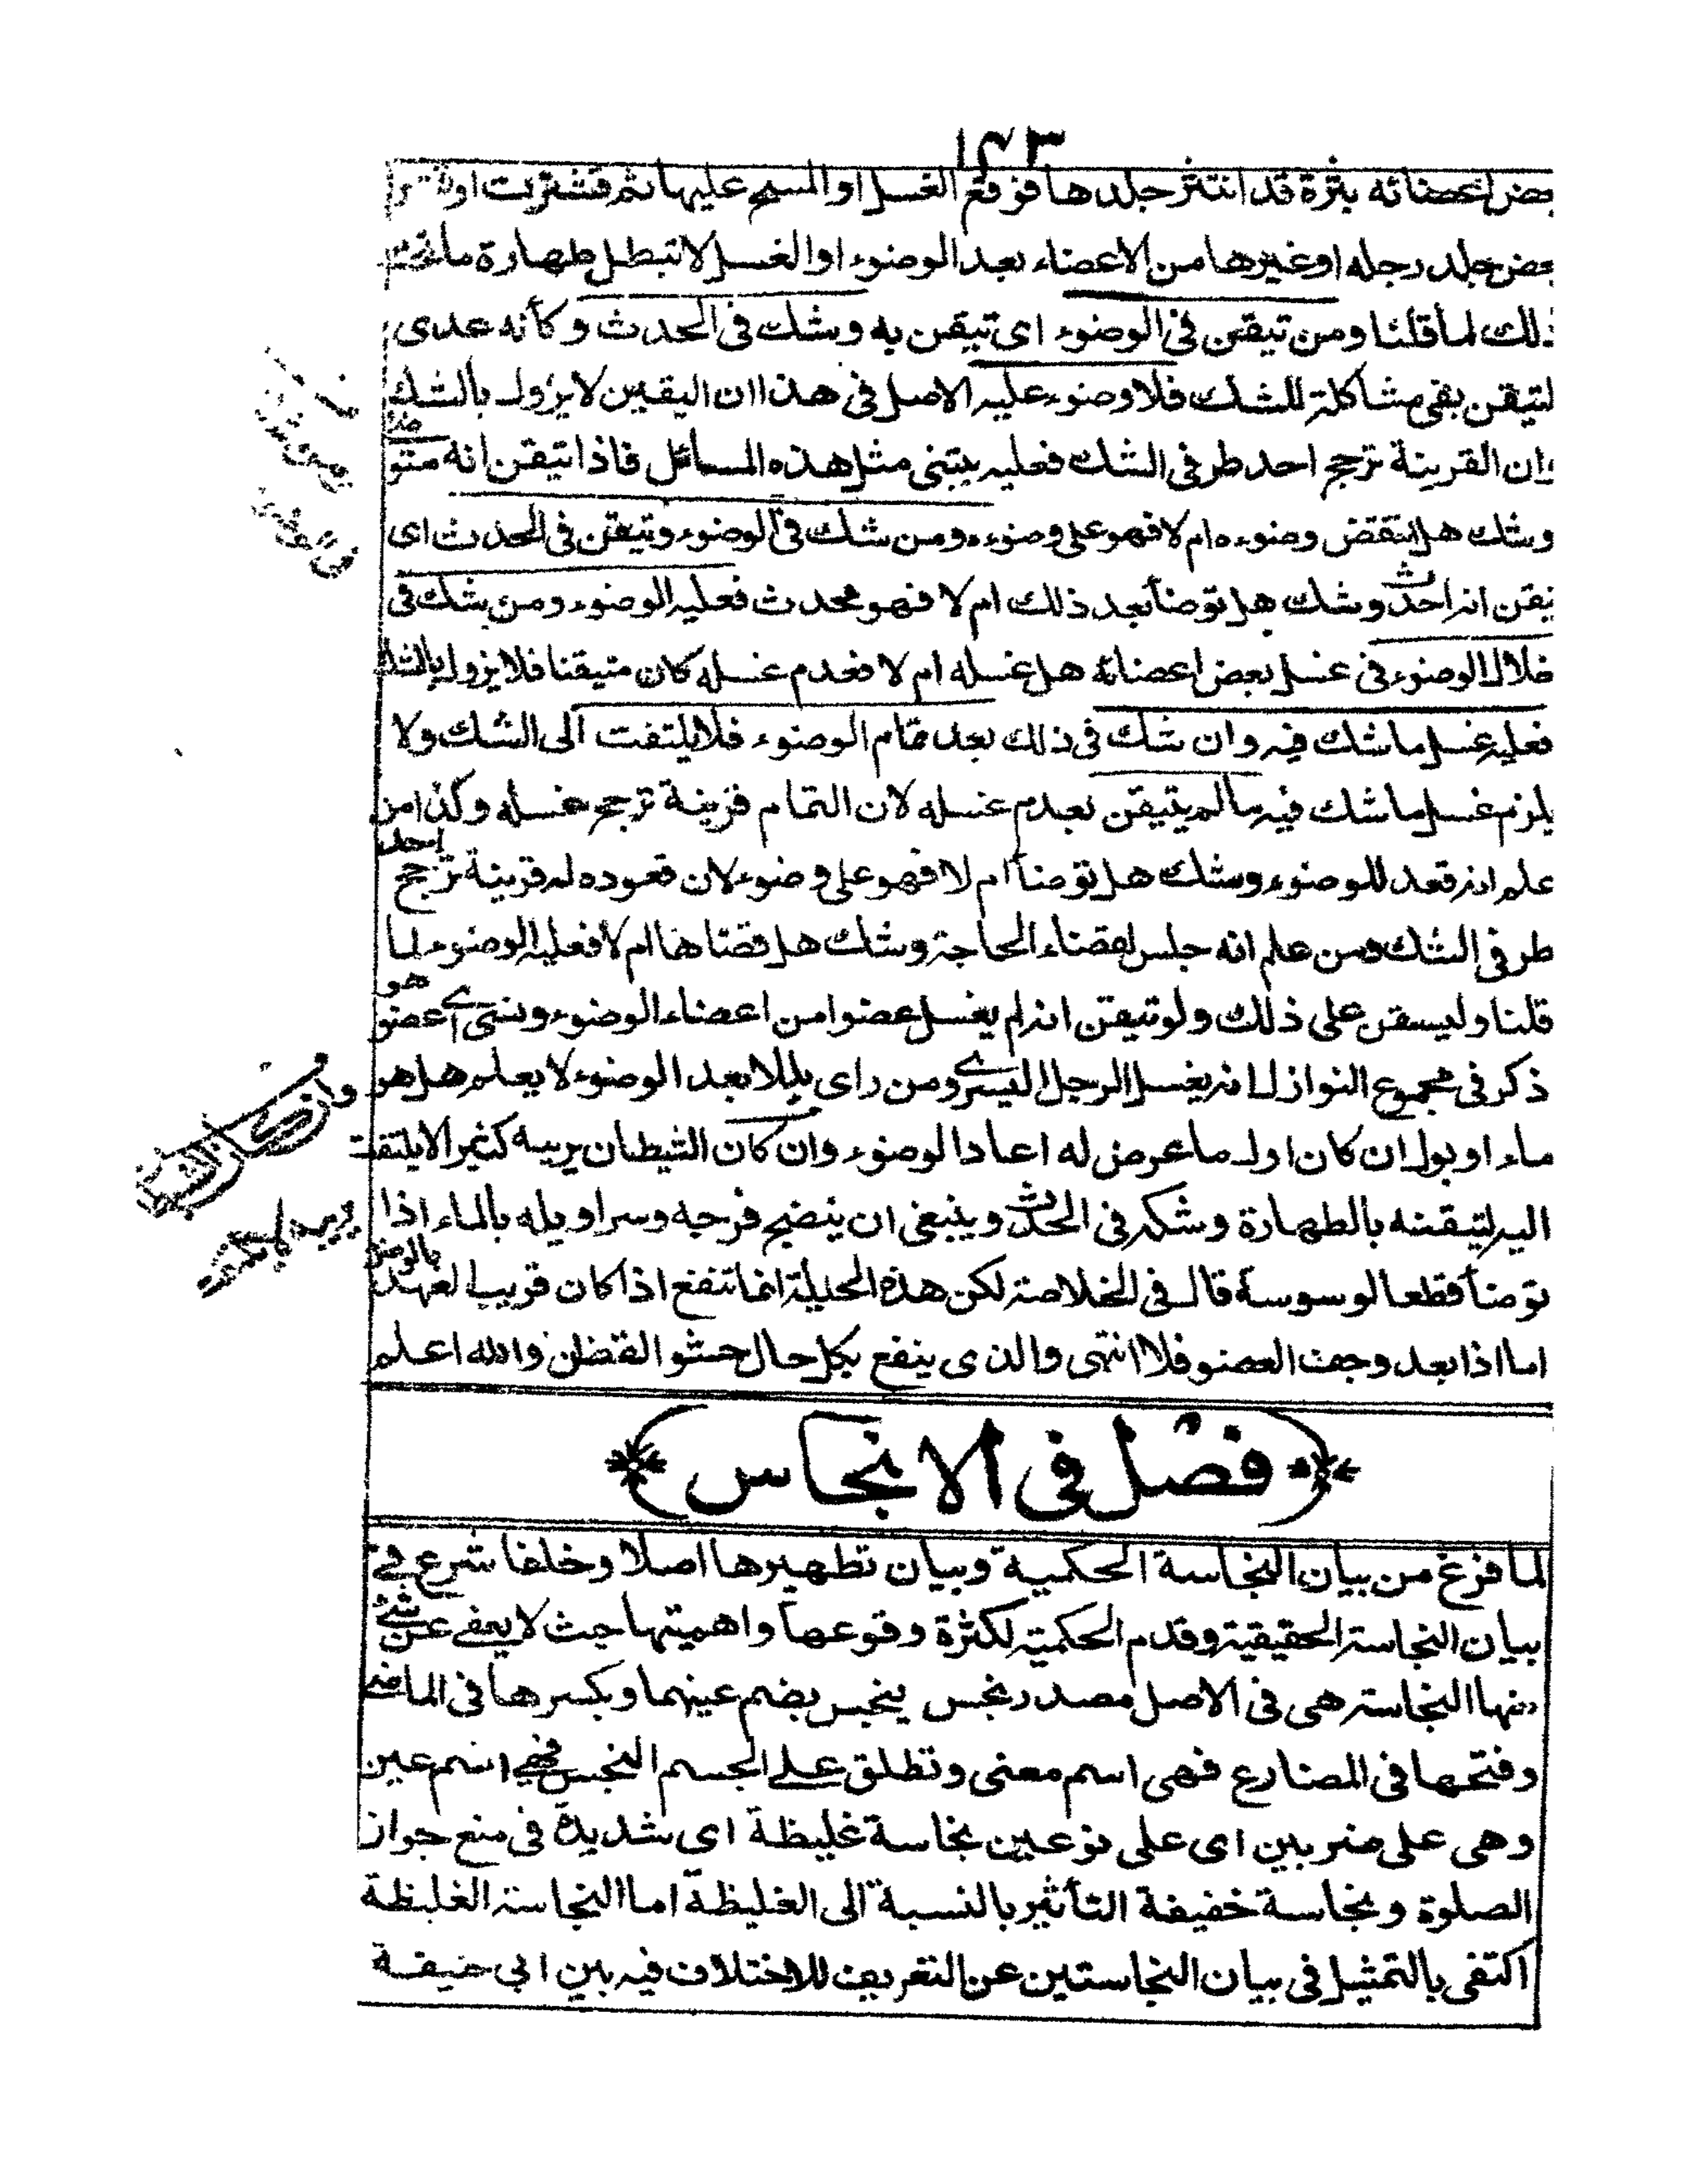 ١٤٣
بعض اعضائه بثرة قد انتثر جلدها فوقع الغسل او المسح عليها ثم قشرت او قشر
بعض جلد رجله او غيرها من الاعضاء بعد الوضوء او الغسل لا تبطل طهارة ما تحت
ذلك لما قلنا ومن تيقن فى الوضوء اى تيقن به وشك فى الحدث وكأنه عدى
لتيقن بفى مشاكلة للشك فلا وضوء عليه الاصل فى هذا ان اليقين لا يزول بالشك
وان القرينة ترجح احد طرفى الشك فعليه يبتنى مثل هذه المسائل فاذا تيقن انه متوضئ
وشك هل انتقض وضوءه ام لا فهو على وضوءه ومن شك فى الوضوء وتيقن فى الحدث اى
تيقن انه احدث وشك هل توضأ بعد ذلك ام لا فهو محدث فعليه الوضوء ومن شك فى
خلال الوضوء فى غسل بعض اعضائه هل غسله ام لا فعدم غسله كان متيقنا فلا يزول بالشك
فعليه غسل ما شك فيه وان شك فى ذلك بعد تمام الوضوء فلا يلتفت الى الشك ولا
يلزم غسل ما شك فيه ما لم يتيقن بعدم غسله لان التمام قرينة ترجح غسله وكذا من
علم انه قعد للوضوء وشك هل توضأ ام لا فهو على وضوء لان قعوده له قرينة ترجح احد
طرفى الشك ومن علم انه جلس لقضاء الحاجة وشك هل قضاها ام لا فعليه الوضوء لما
قلنا وليسقن على ذلك ولو تيقن انه لم يغسل عضوا من اعضاء الوضوء ونسى اى عضو هو
ذكر فى مجموع النوازل انه يغسل الرجل اليسرى ومن راى بللا بعد الوضوء لا يعلم هل هو
ماء او بول ان كان اول ما عرض له اعاد الوضوء وان كان الشيطان يريبه كثيرا لا يلتفت
اليه لتيقنه بالطهارة وشكه فى الحدث وينبغى ان ينضح فرجه وسراويله بالماء اذا
توضأ قطعا لوسوسة قال فى الخلاصة لكن هذه الحيلة انما تنفع اذا كان قريب العهد بالوضوء
اما اذا بعد وجف العضو فلا انتهى والذى ينفع بكل حال حشو القطن والله اعلم
وان كان الشيطان
يريبه كثيرا
فصل فى الانجاس
لما فرغ من بيان النجاسة الحكمية وبيان تطهيرها اصلا وخلفا شرع فى
بيان النجاسة الحقيقية وقدم الحكمية لكثرة وقوعها واهميتها حيث لا يعفى عن شئ
منها النجاسة هى فى الاصل مصدر نجس ينجس بضم عينهما وبكسرها فى الماضى
وفتحها فى المضارع فهى اسم معنى وتطلق على الجسم النجس فهى اسم عين
وهى على ضربين اى على نوعين نجاسة غليظة اى شديدة فى منع جواز
الصلوة ونجاسة خفيفة التأثير بالنسبة الى الغليظة اما النجاسة الغليظة
اكتفى بالتمثيل فى بيان النجاستين عن التعريف للاختلاف فيه بين ابى حنيفة